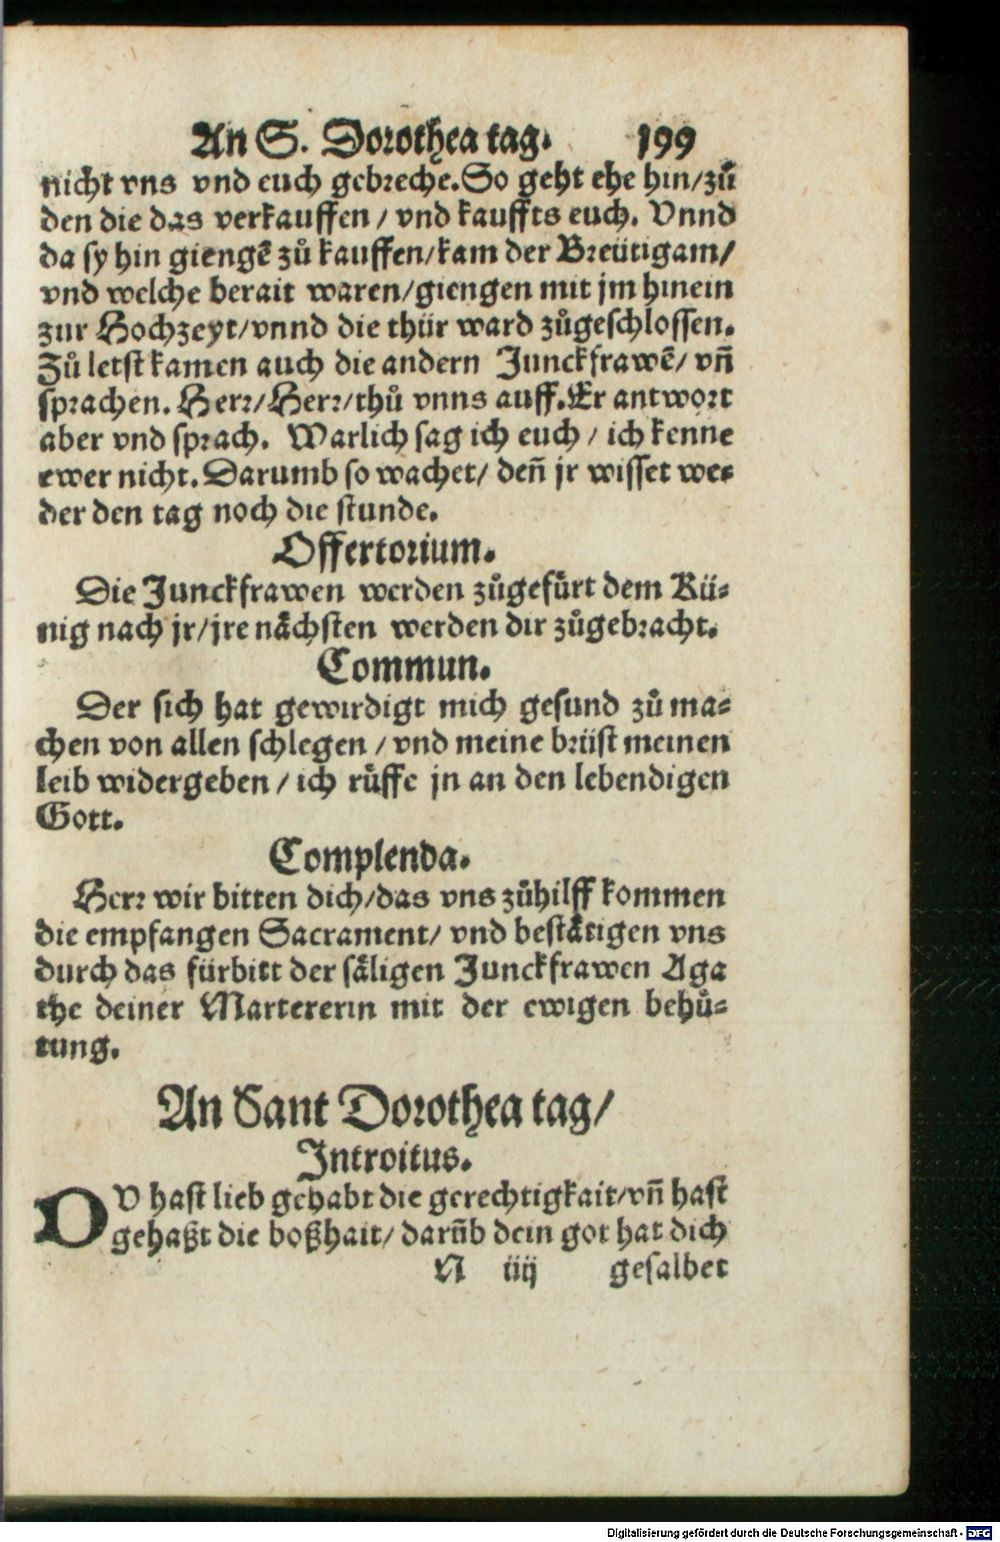 An S. Dorothea tag. 199
nicht vns vnd euch gebreche. So geht ehe hin/zů
den die das verkauffen / vnd kauffts euch. Vnnd
da sy hin giengẽ zů kauffen/kam der Breütigam/
vnd welche berait waren/giengen mit jm hinein
zur Hochzeyt/vnnd die thür ward zůgeschlossen.
Zů letst kamen auch die andern Junckfrawẽ/ vñ
sprachen. Herr/Herr/thů vnns auff. Er antwort
aber vnd sprach. Warlich sag ich euch / ich kenne
ewer nicht. Darumb so wachet/ deñ jr wisset we-
der den tag noch die stunde.
Offertorium.
Die Junckfrawen werden zůgefürt dem Kü-
nig nach jr/jre nächsten werden dir zůgebracht.
Commun.
Der sich hat gewirdigt mich gesund zů ma-
chen von allen schlegen / vnd meine brüst meinen
leib widergeben / ich rüffe jn an den lebendigen
Gott.
Complenda.
Herr wir bitten dich/das vns zůhilff kommen
die empfangen Sacrament/ vnd bestätigen vns
durch das fürbitt der säligen Junckfrawen Aga
the deiner Martererin mit der ewigen behü-
tung.
An Sant Dorothea tag/
Introitus.
DV hast lieb gehabt die gerechtigkait/vñ hast
gehaßt die boßhait/ darũb dein got hat dich
N iiij gesalbet
Digitalisierung gefördert durch die Deutsche Forschungsgemeinschaft - DFG